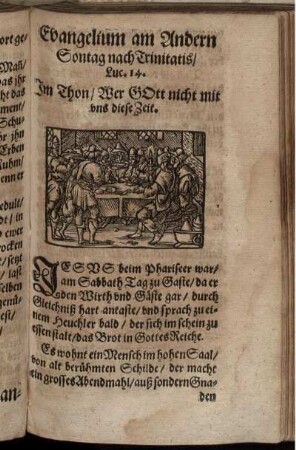 ort ge-
Evangelium am Andern
Sontag nach Trinitatis/
Luc. 14.
Im Thon/ Wer GOtt nicht mit
vns diese Zeit.
JESVS beim Phariseer war/
am Sabbath Tag zu Gaste/ da er
den Wirth vnd Gäste gar/ durch
Gleichniß hart antaste/ vnd sprach zu ei-
nem Heuchler bald/ der sich im schein zu
essen stalt/ das Brot in Gottes Reiche.
Es wohnt ein Mensch im hohen Saal/
von alt berühmten Schilde/ der macht
ein grosses Abendmahl/ auß sondern Gna-
den
an-